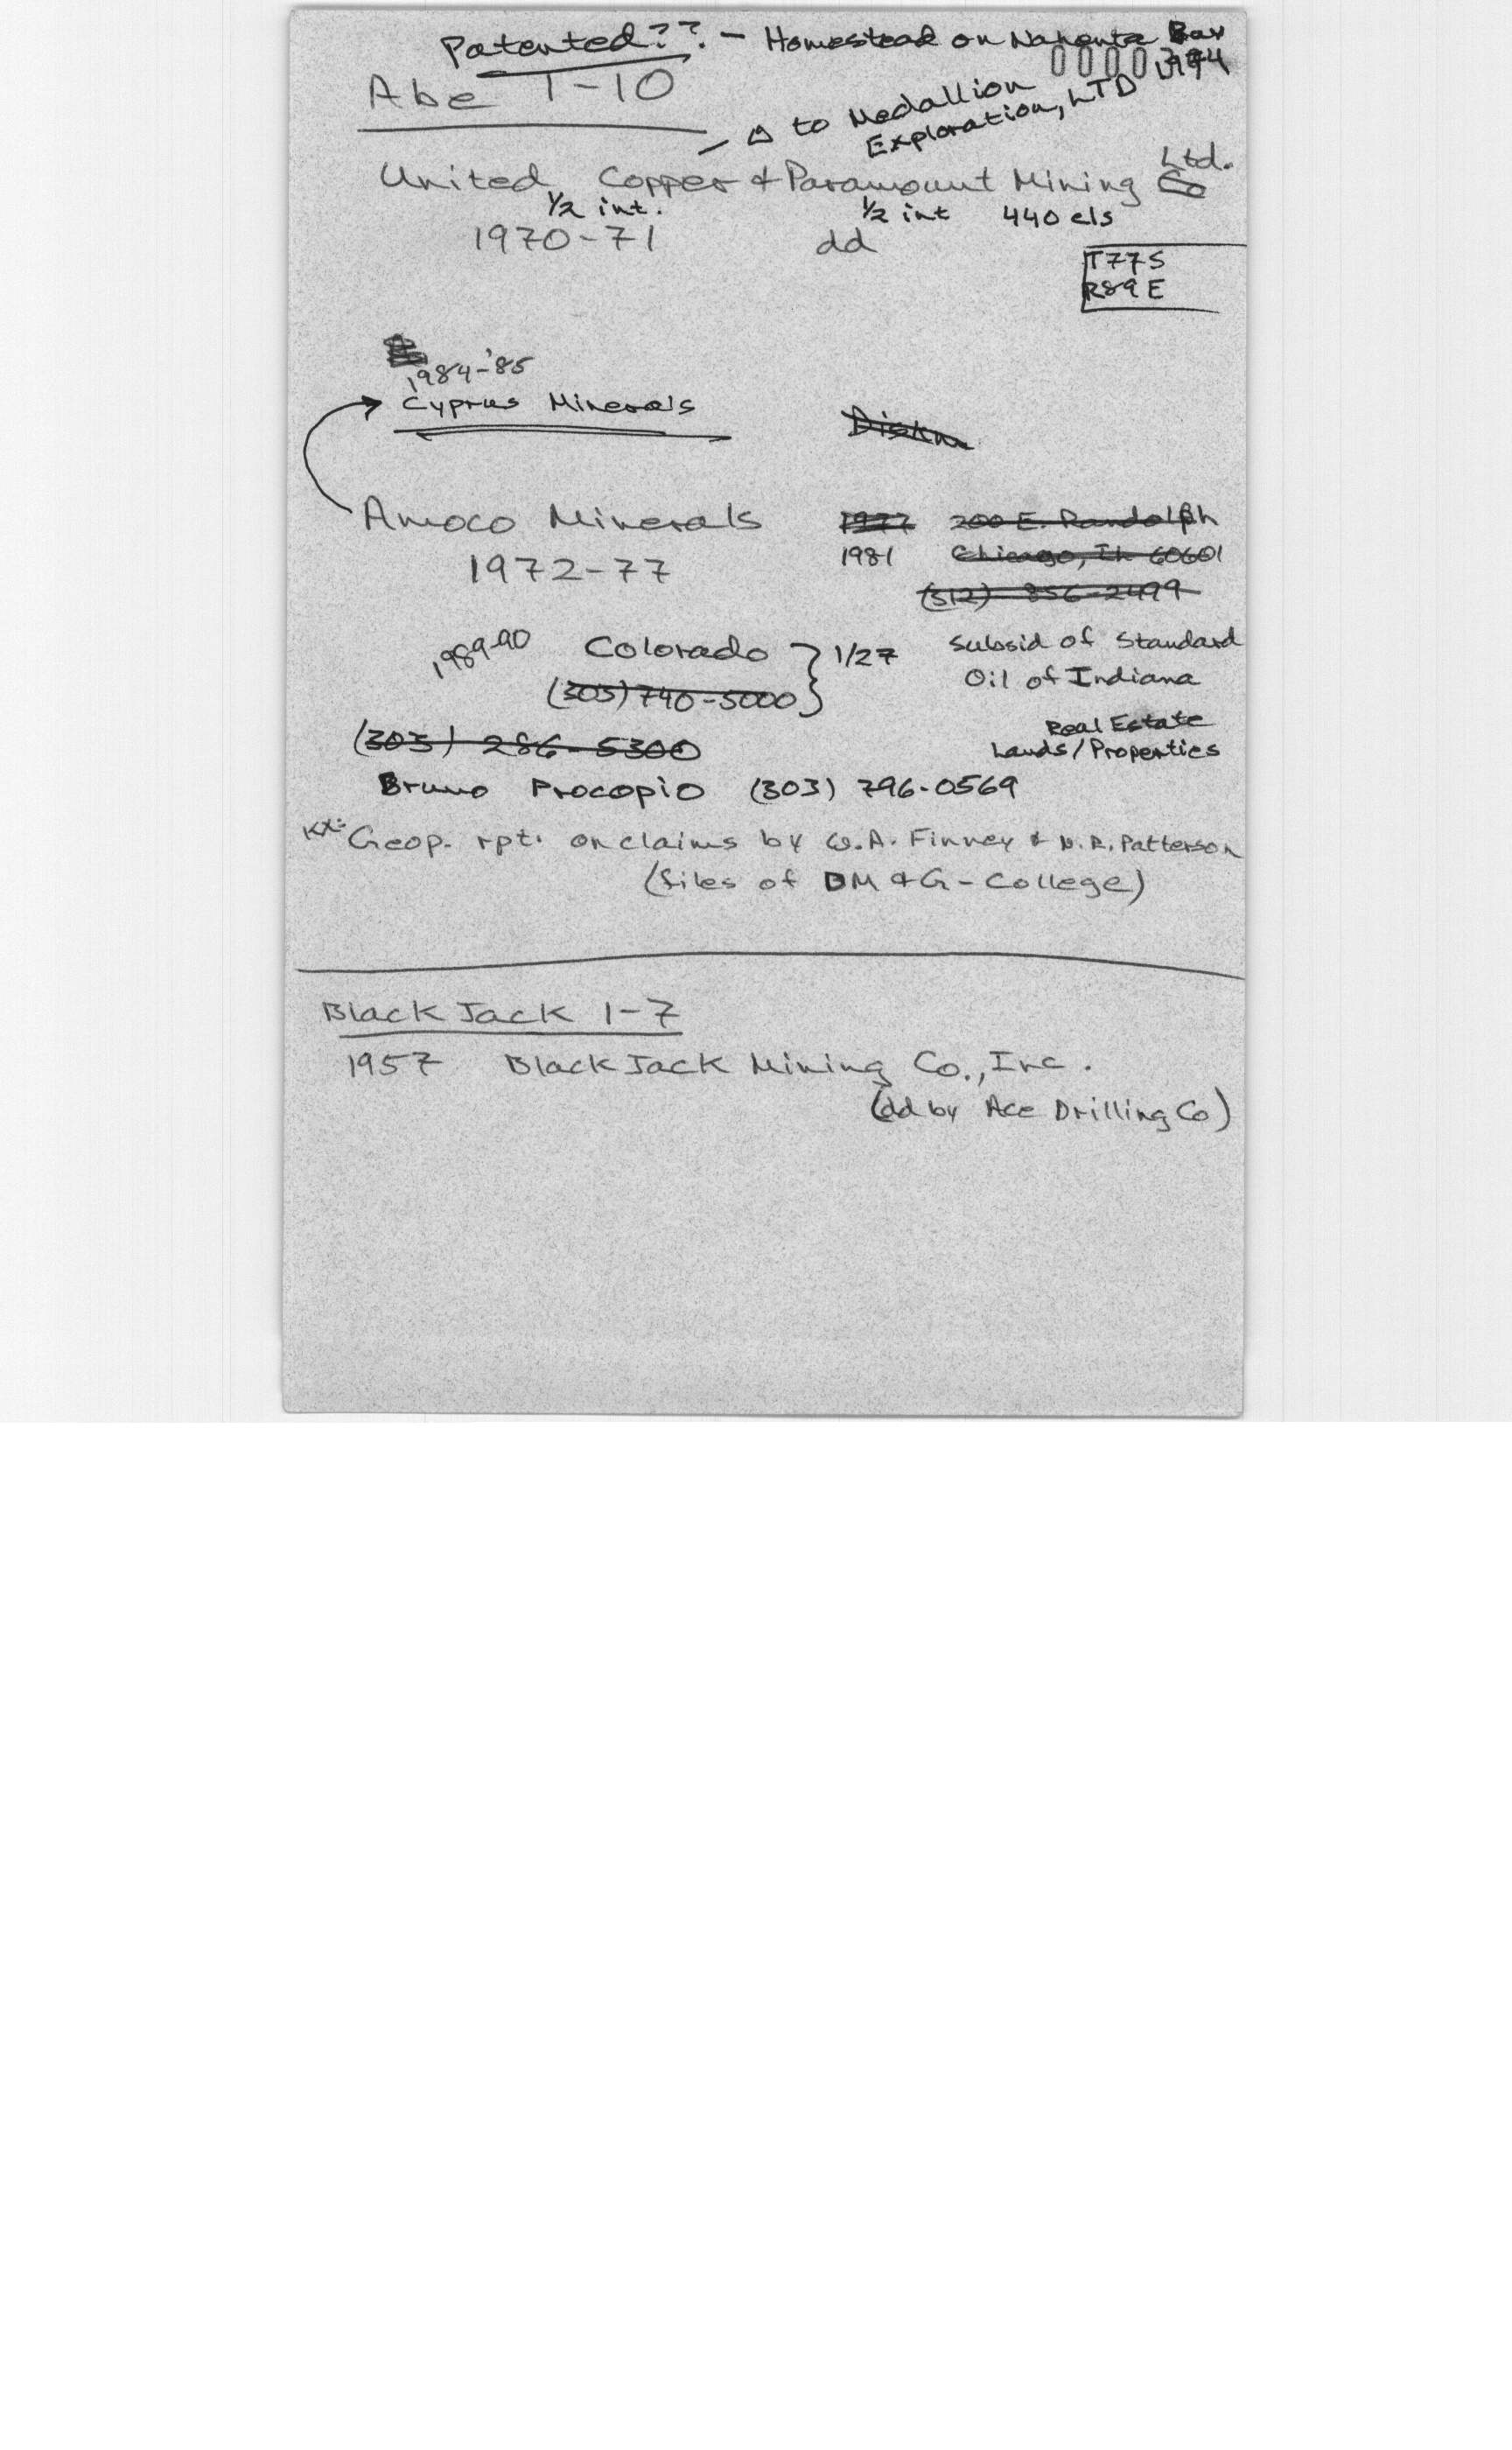 Patented?? - Homestead on Nakenta Bay
1994
Abe 1-10
- Δ to Medallion
Exploration, LTD
Ltd.
United Copper & Paramount Mining Co
1/2 int. 1/2 int 440 cls
1970-71 dd
T77S
R89E
1984-'85
Cyprus Minerals
Amoco Minerals 1977 200 E. Randolph
1972-77 1981 Chicago, Ih 60601
(312) 856-2499
1989-90 Colorado } 1/27 Subsid of Standard
(303) 740-5000 Oil of Indiana
Real Estate
(303) 286-5300 Lands/Properties
Bruno Procopio (303) 796-0569
KX: Geop. rpt. on claims by W.A. Finney & N.R. Patterson
(files of DM & G - College)
Black Jack 1-7
1957 Black Jack Mining Co., Inc.
(dd by Ace Drilling Co)